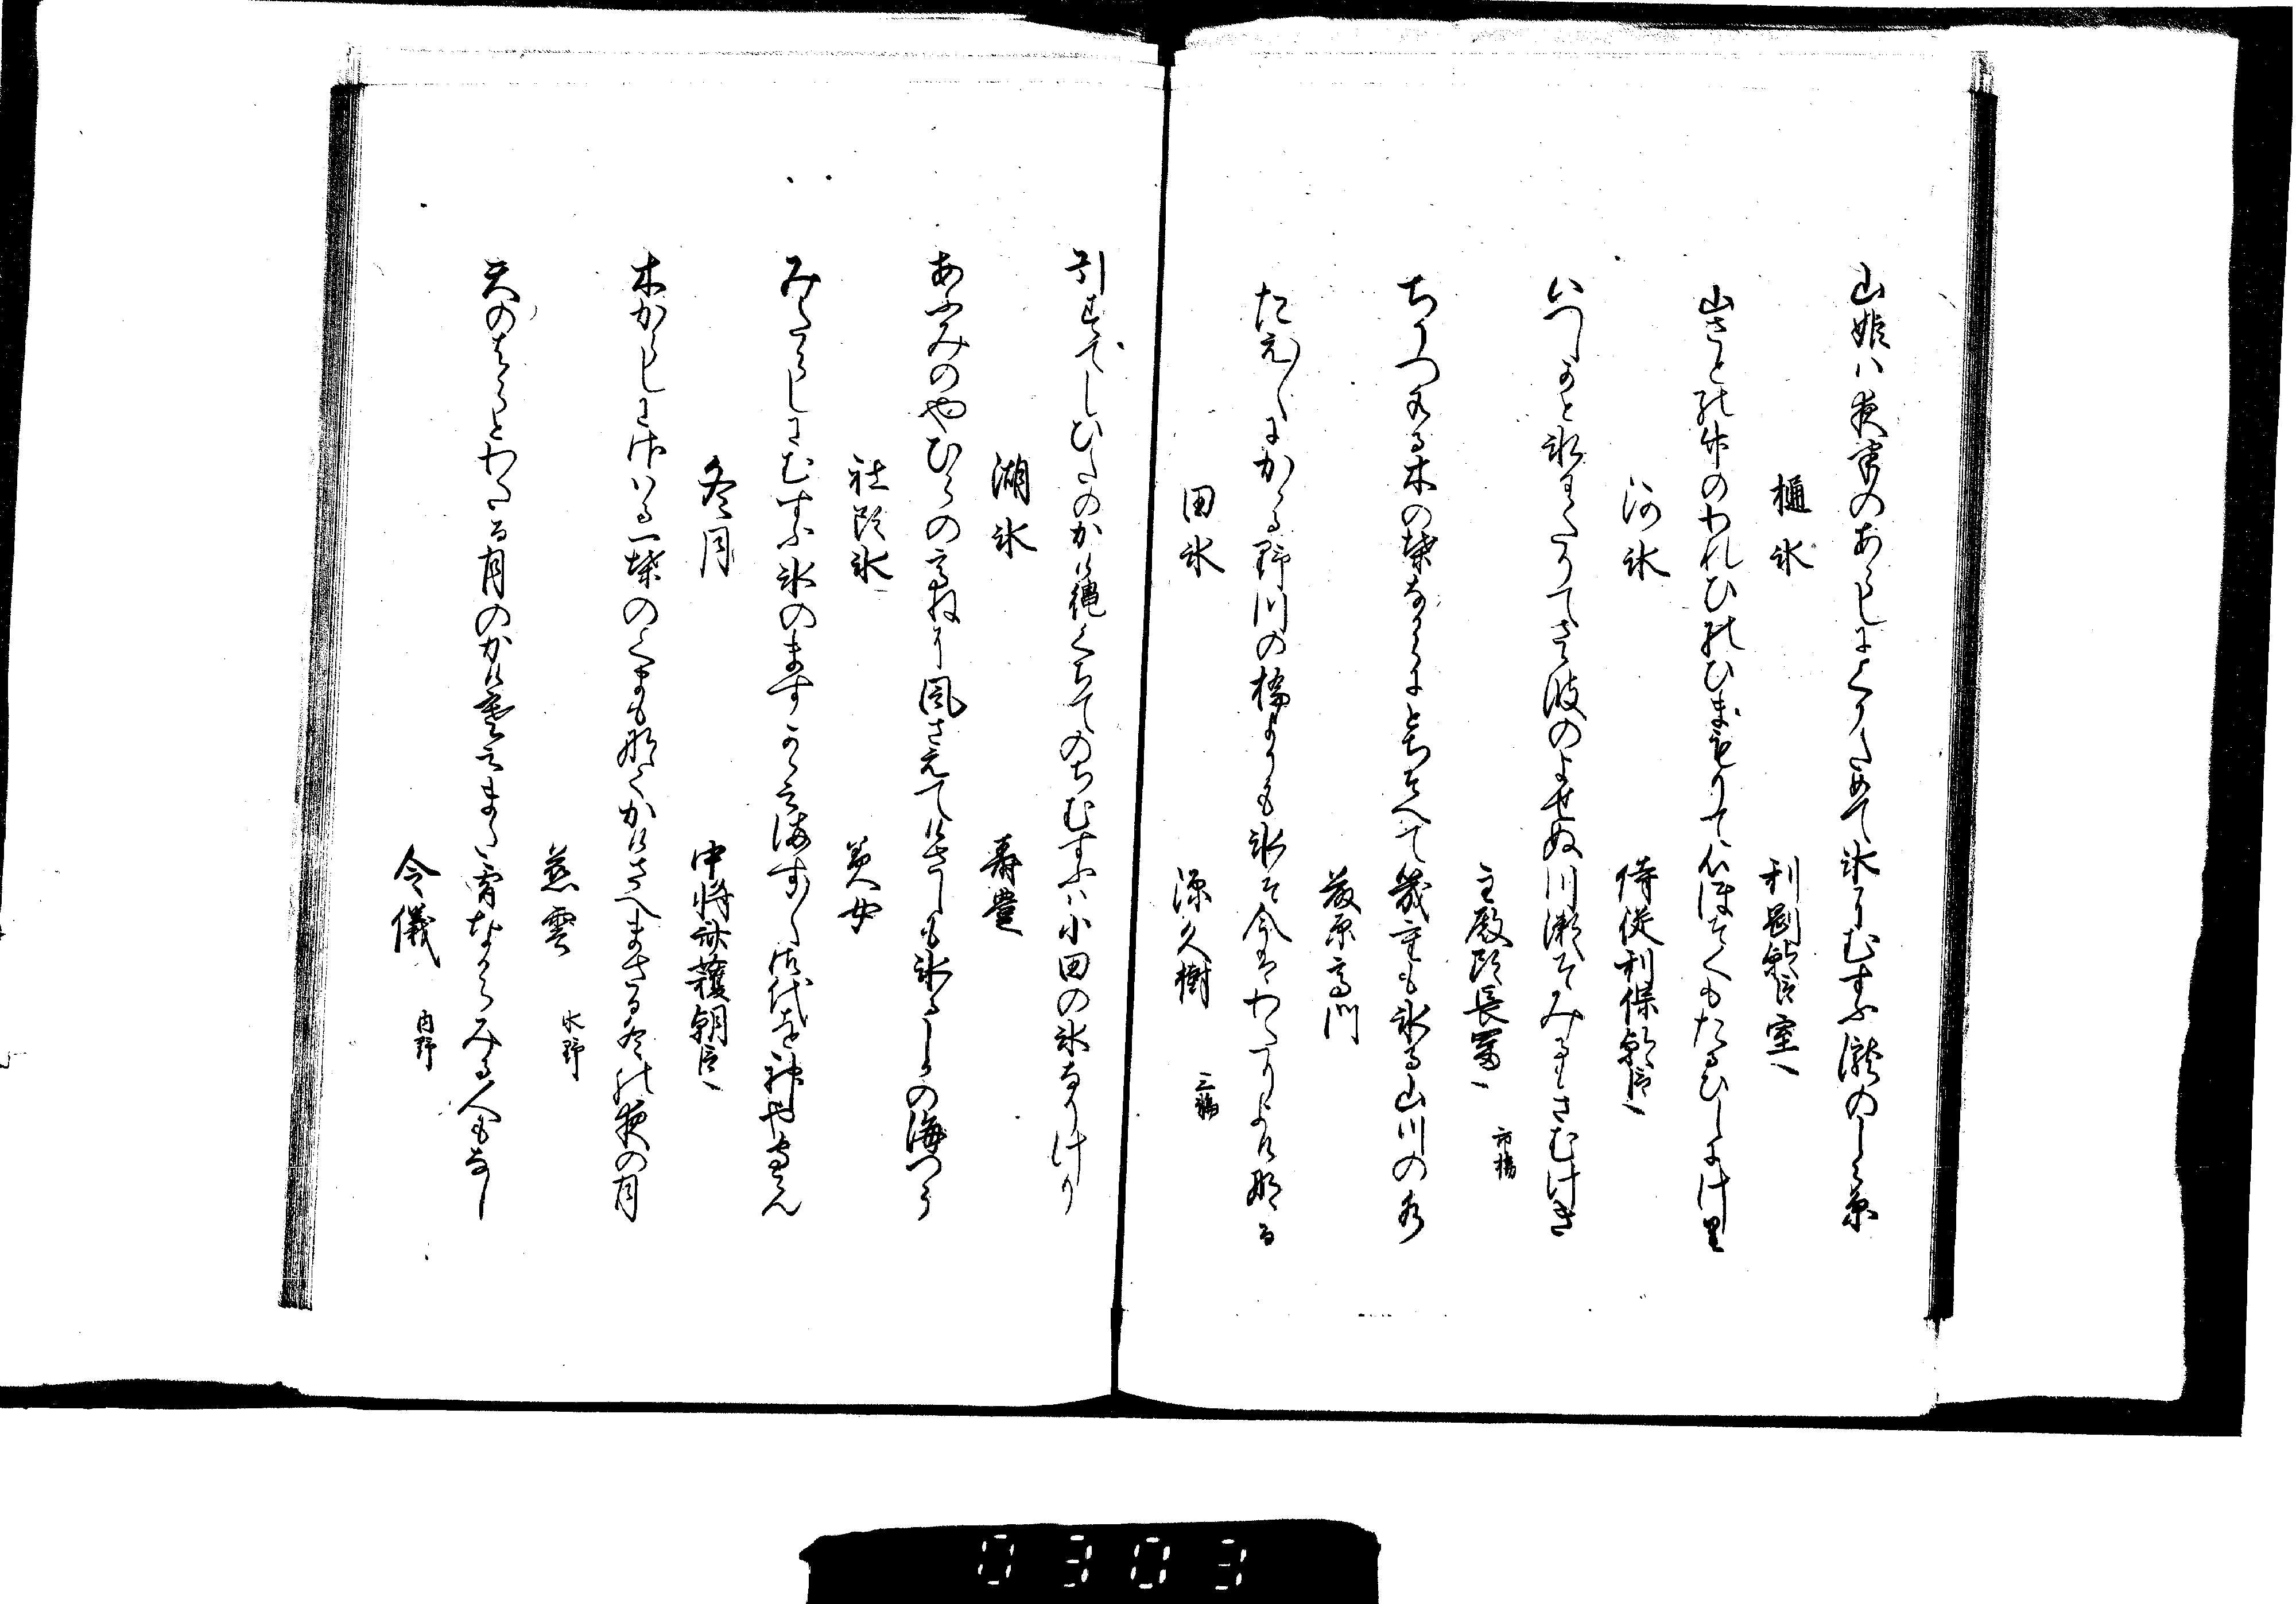 山姫は夜半のあらしによりためて氷にむすふ滝のしら糸
樋氷
利剛朝臣室
山さとは竹のわれひのひまもりて心ほそくもたるひしにけり
河氷
侍従利保朝臣
いつしかと氷わたりてさら波のよせぬ川瀬そみるもさむけき
主殿頭長冨 市橋
ちりつもる木の葉なからにとちそへて幾重も氷る山川の水
藤原高門
たえ〳〵にかかる野川の橋よりも氷そ今はわたりよけなる
田氷
源久樹 三輪
引すてしひたのかけ縄くちてのちむすふは小田の氷なりけり
湖氷
寿豊
あふみのやひらの高ねに風さえてけさしも氷るしかの海つら
社頭氷
美女
みたらしにむすふ氷のますかかみ海す御代を神や守らん
冬月
中将斉護朝臣
木からしにはける一葉のくまも那くかけさへまさる冬の夜の月
慈雲 水野
天のはらとわたる月のかけ寒てまた宵なからみる人もなし
令儀 内野
0303